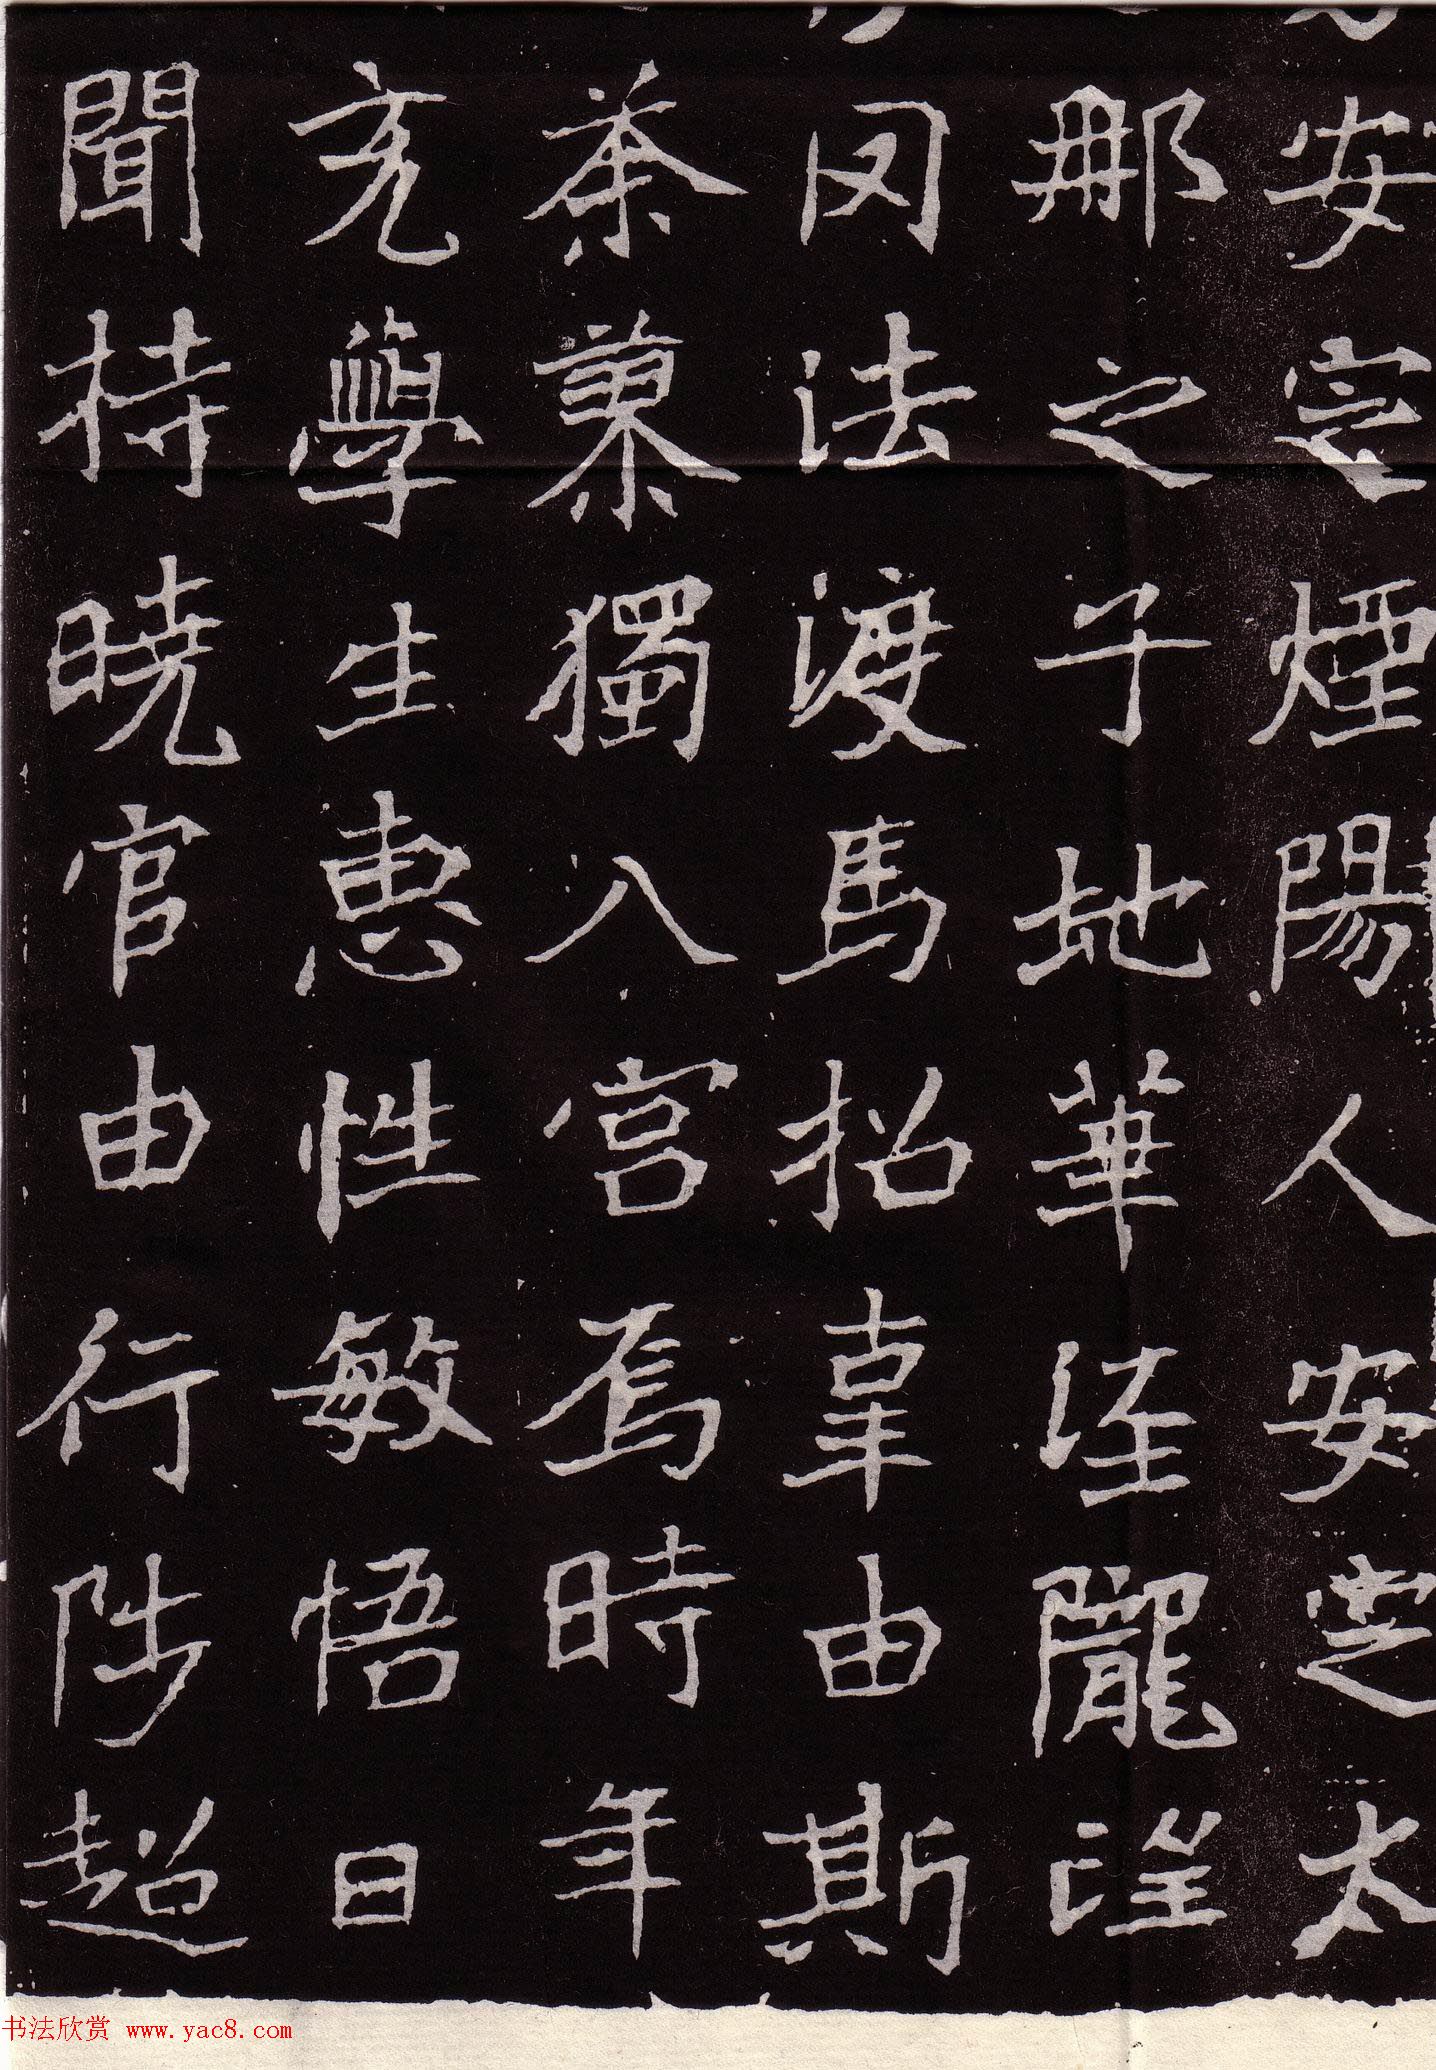 安定煙陽人安定太
那之子地華涇隴詮
因法渡馬招辜由斯
荼兼獨入宮焉時年
充學生惠性敏悟日
聞持曉官由行陟超
书法欣赏 www.yac8.com